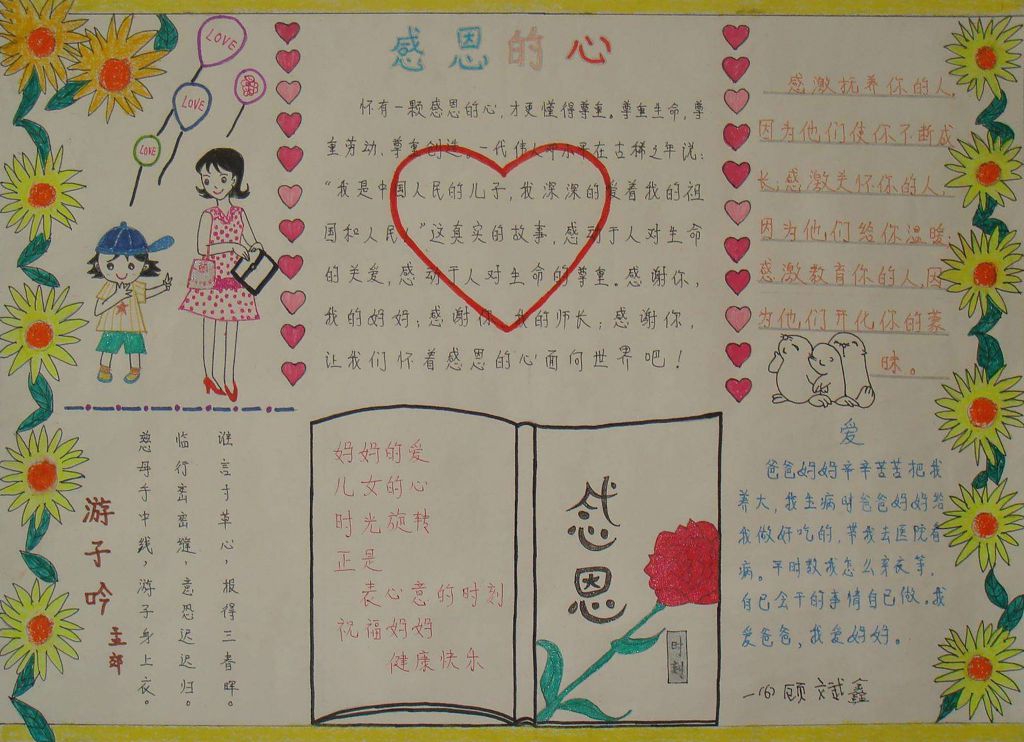 LOVE
LOVE
LOVE
感恩的心
怀有一颗感恩的心，才更懂得尊重。尊重生命，尊
重劳动、尊重创造。一代伟人邓小平在古稀之年说：
“我是中国人民的儿子，我深深的爱着我的祖
国和人民！”这真实的故事，感动于人对生命
的关爱，感动于人对生命的尊重。感谢你，
我的妈妈；感谢你，我的师长；感谢你，
让我们怀着感恩的心面向世界吧！
感激抚养你的人，
因为他们使你不断成
长；感激关怀你的人，
因为他们给你温暖；
感激教育你的人，因
为他们开化你的蒙
昧。
游子吟
慈母手中线，游子身上衣。
临行密密缝，意恐迟迟归。
谁言寸草心，报得三春晖。
妈妈的爱
儿女的心
时光旋转
正是
表心意的时刻
祝福妈妈
健康快乐
感恩
时刻
爱
爸爸妈妈辛辛苦苦把我
养大，我生病时爸爸妈妈给
我做好吃的，带我去医院看
病。平时教我怎么穿衣等，
自己会干的事情自己做。我
爱爸爸，我爱妈妈。
一(6) 顾斌鑫